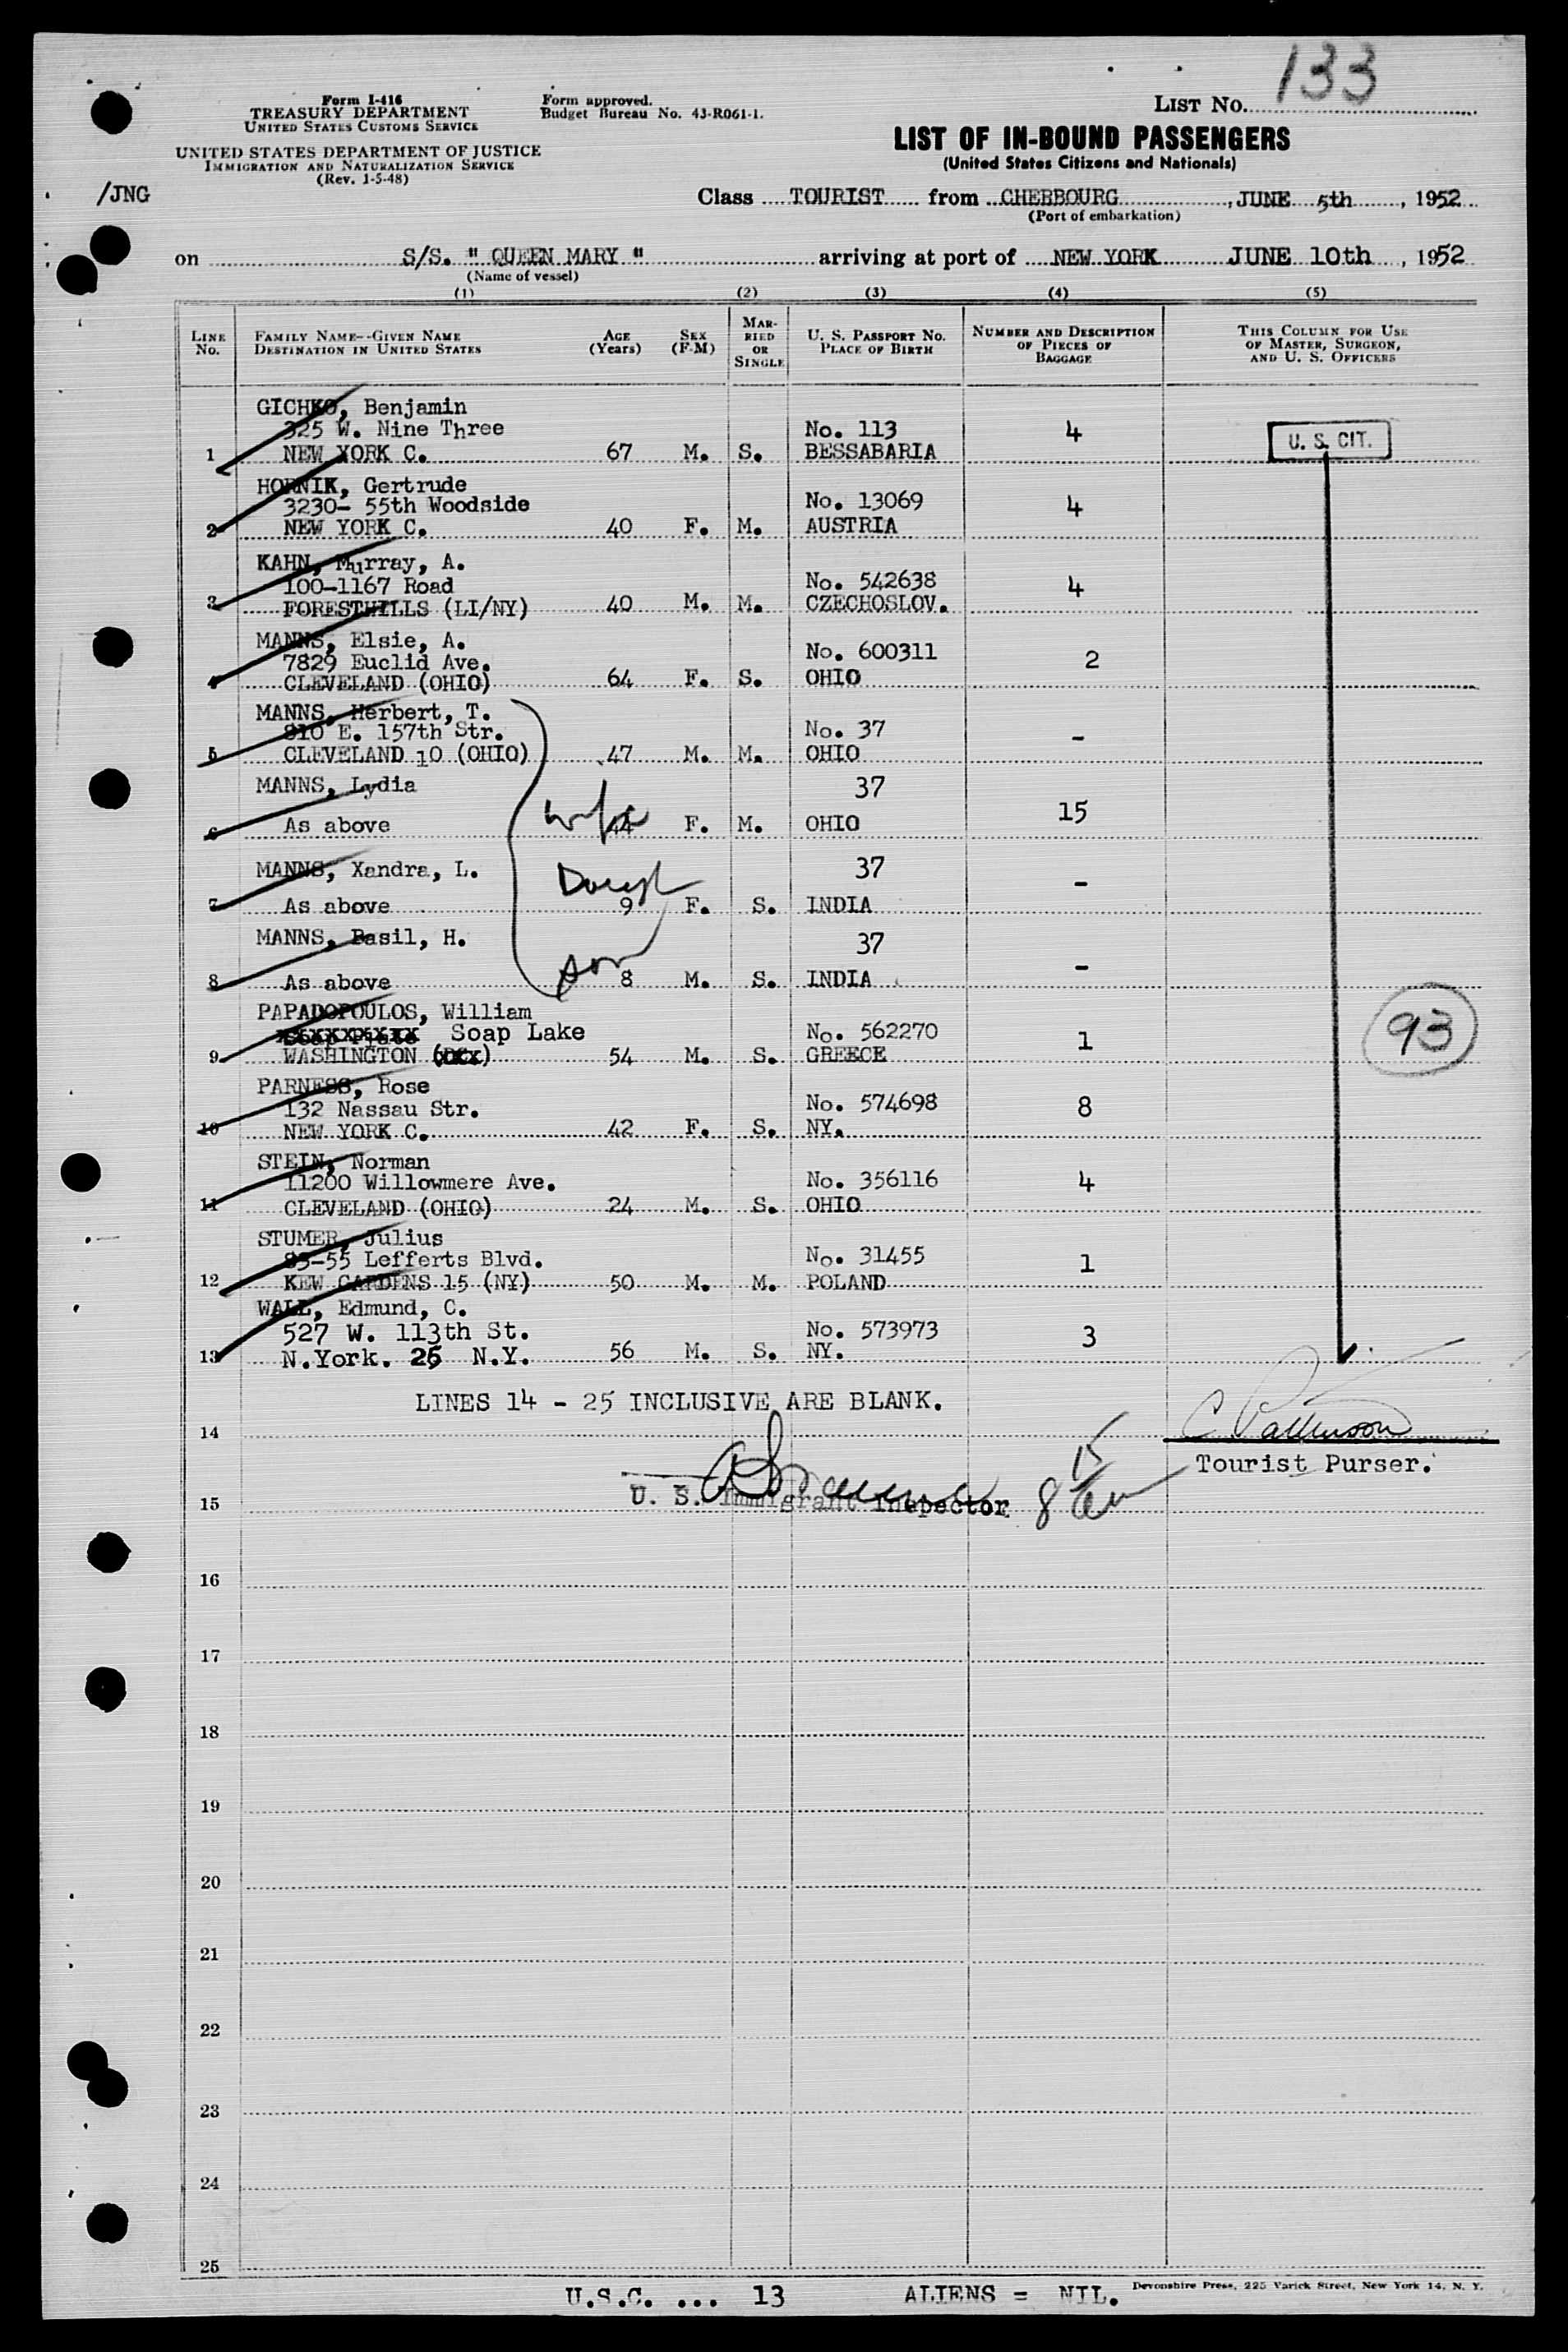 133
Form I-416
TREASURY DEPARTMENT
UNITED STATES CUSTOMS SERVICE
UNITED STATES DEPARTMENT OF JUSTICE
IMMIGRATION AND NATURALIZATION SERVICE
(Rev. 1-5-48)
Form approved.
Budget Bureau No. 43-R061-1.
LIST No.
LIST OF IN-BOUND PASSENGERS
(United States Citizens and Nationals)
/JNG
Class TOURIST from CHERBOURG, JUNE 5th, 1952
(Port of embarkation)
on S/S. " QUEEN MARY " arriving at port of NEW YORK JUNE 10th, 1952
(Name of vessel)
(1) (2) (3) (4) (5)
LINE No. FAMILY NAME--GIVEN NAME DESTINATION IN UNITED STATES AGE (Years) SEX (F-M) MARRIED OR SINGLE U. S. PASSPORT No. PLACE OF BIRTH NUMBER AND DESCRIPTION OF PIECES OF BAGGAGE THIS COLUMN FOR USE OF MASTER, SURGEON, AND U. S. OFFICERS
GICHKO, Benjamin
325 W. Nine Three No. 113 4 U. S. CIT.
1 NEW YORK C. 67 M. S. BESSABARIA
HORNIK, Gertrude
3230- 55th Woodside No. 13069 4
2 NEW YORK C. 40 F. M. AUSTRIA
KAHN, Murray, A.
100-1167 Road No. 542638 4
3 FORESTHILLS (LI/NY) 40 M. M. CZECHOSLOV.
MANNS, Elsie, A.
7829 Euclid Ave. No. 600311 2
4 CLEVELAND (OHIO) 64 F. S. OHIO
MANNS, Herbert, T.
810 E. 157th Str. No. 37 -
5 CLEVELAND 10 (OHIO) 47 M. M. OHIO
MANNS, Lydia 37
wife 15
6 As above 44 F. M. OHIO
MANNS, Xandra, L. 37
Daugh -
7 As above 9 F. S. INDIA
MANNS, Basil, H. 37
son -
8 As above 8 M. S. INDIA
PAPADOPOULOS, William
Soap Lake No. 562270 1
9 WASHINGTON 54 M. S. GREECE
93
PARNESS, Rose
132 Nassau Str. No. 574698 8
10 NEW YORK C. 42 F. S. NY.
STEIN, Norman
11200 Willowmere Ave. No. 356116 4
11 CLEVELAND (OHIO) 24 M. S. OHIO
STUMER, Julius
83-55 Lefferts Blvd. No. 31455 1
12 KEW GARDENS 15 (NY) 50 M. M. POLAND
WALL, Edmund, C.
527 W. 113th St. No. 573973 3
13 N.York. 25 N.Y. 56 M. S. NY.
LINES 14 - 25 INCLUSIVE ARE BLANK.
14
Tourist Purser.
15
U. S. Immigrant Inspector
15
8
16
17
18
19
20
21
22
23
24
25
U.S.C. ... 13 ALIENS = NIL.
Devonshire Press, 225 Varick Street, New York 14, N. Y.